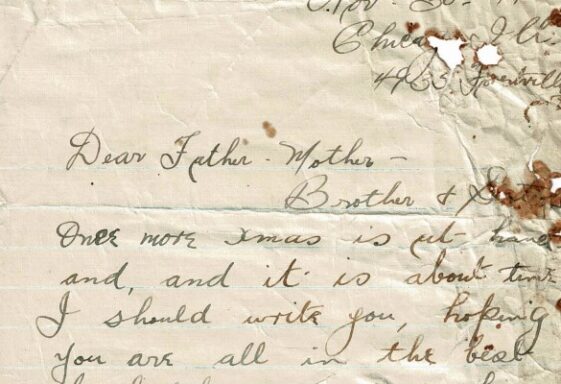 Chicago Ills
4935
Dear Father - Mother -
Brother &
Once more Xmas is at hand
and, and it is about time
I should write you, hoping
you are all in the best